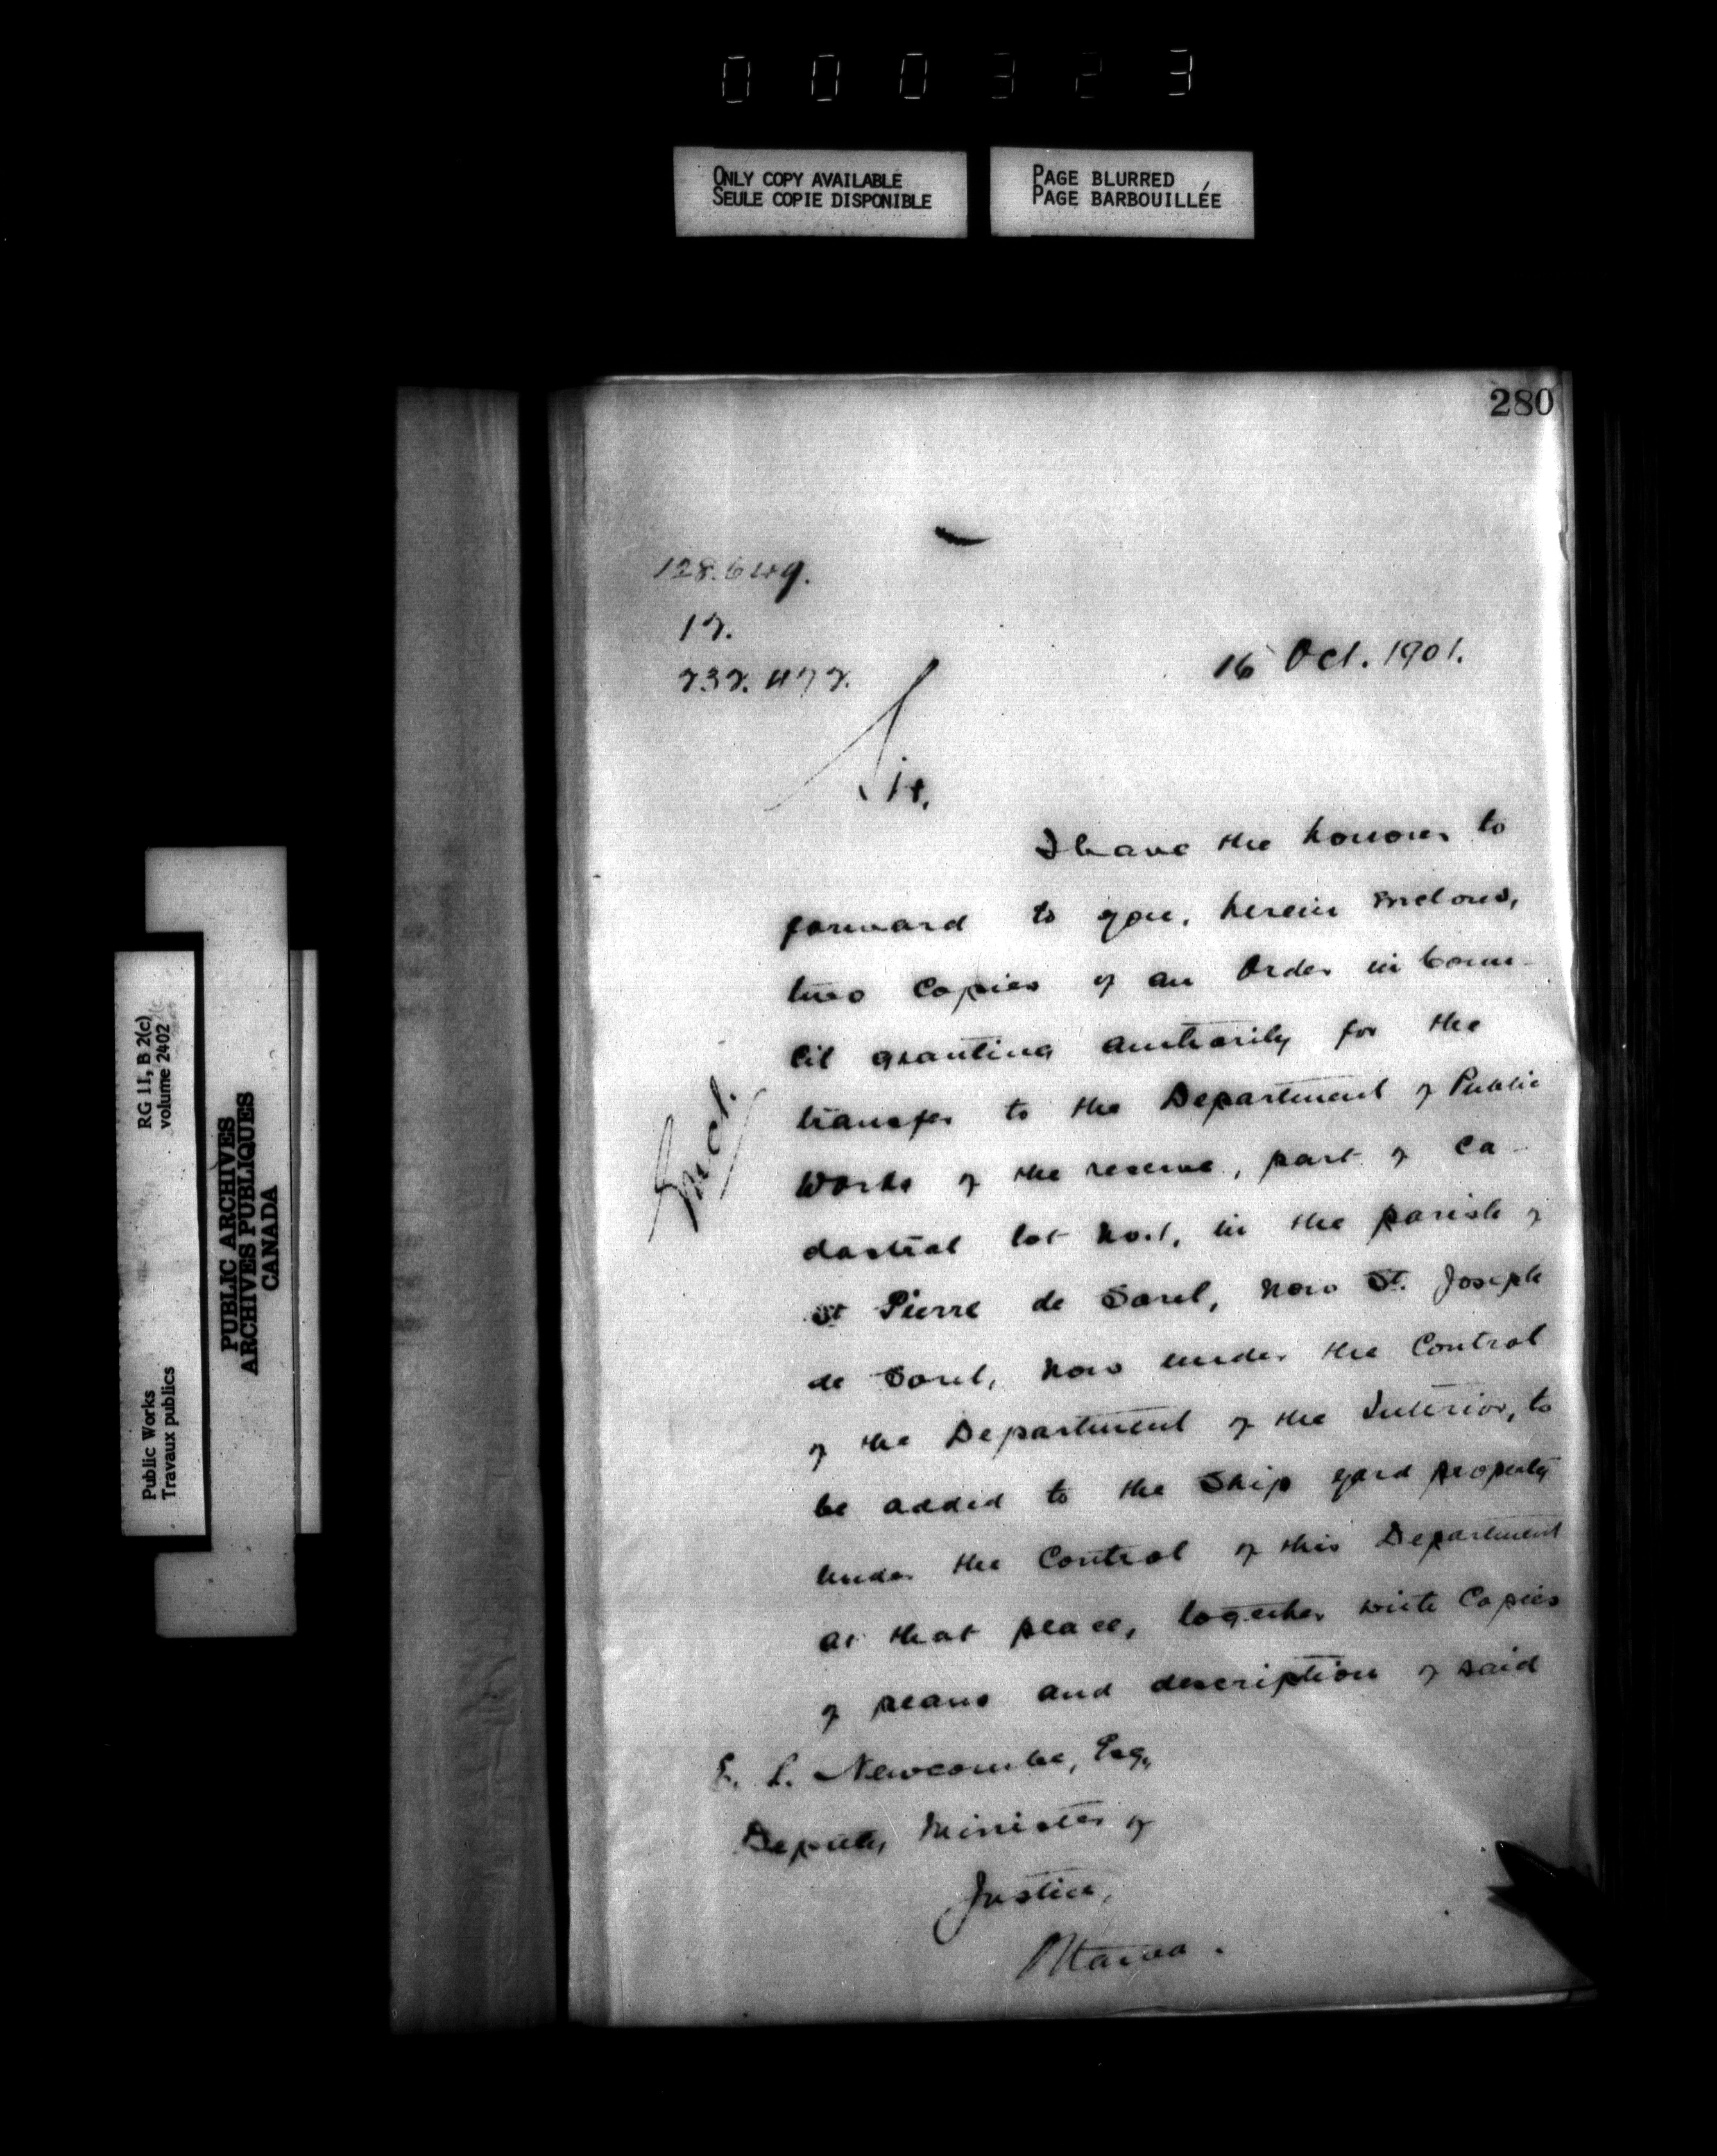 000323
ONLY COPY AVAILABLE
SEULE COPIE DISPONIBLE
PAGE BLURRED
PAGE BARBOUILLÉE
RG 11, B 2(c)
volume 2402
Public Works
Travaux publics
PUBLIC ARCHIVES
ARCHIVES PUBLIQUES
CANADA
280
128.649.
17.
232.472.
16 Oct. 1901.
Sir,
I have the honour to
forward to you, herein enclosed,
two Copies of an Order in Coun-
cil granting authority for the
transfer to the Department of Public
Works of the reserve, part of Ca-
dastral lot No. 1, in the parish of
St Pierre de Sorel, now St. Joseph
de Sorel, now under the Control
of the Department of the Interior, to
be added to the Ship yard property
under the Control of this Department
at that place, together with Copies
of plans and description of said
Encl.
E. L. Newcombe, Esq.,
Deputy Minister of
Justice,
Ottawa.